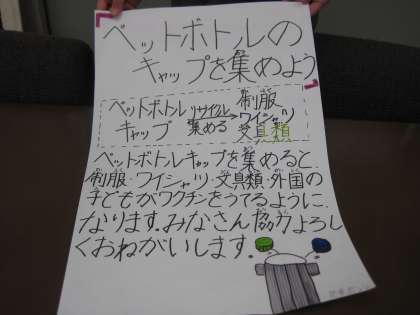 ペットボトルの
キャップを集めよう
ペットボトル リサイクル 制服
キャップ 集める ワイシャツ
文具類
ペットボトルキャップを集めると、
制服・ワイシャツ・文具類・外国の
子どもがワクチンをうてるように
なります。みなさん協力よろし
くおねがいします。